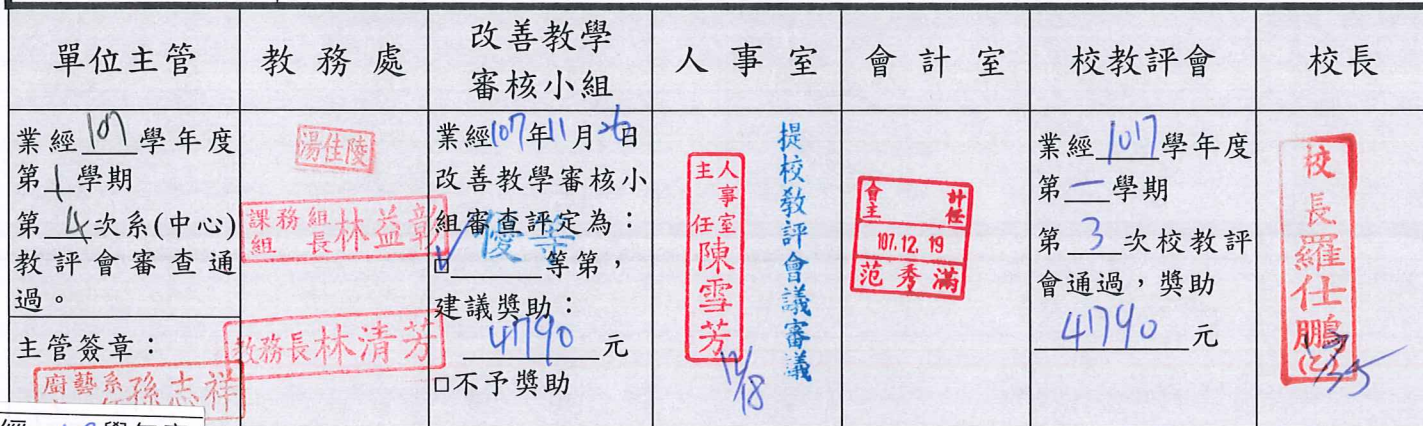 單位主管
教務處
改善教學
審核小組
人事室
會計室
校教評會
校長
業經107學年度
第1學期
第4次系(中心)
教評會審查通
過。
主管簽章：
廚藝系
孫志祥
湯佳陵
課務組
組長林益彰
教務長林清芳
業經107年11月26日
改善教學審核小
組審查評定為：
☑優等等第，
建議獎助：
41790元
□不予獎助
提校教評會議審議
人事室
主任
陳雪芳
12/18
會計
主任
107.12.19
范秀滿
業經107學年度
第一學期
第3次校教評
會通過，獎助
41790元
校長羅仕鵬
(乙)
學年度